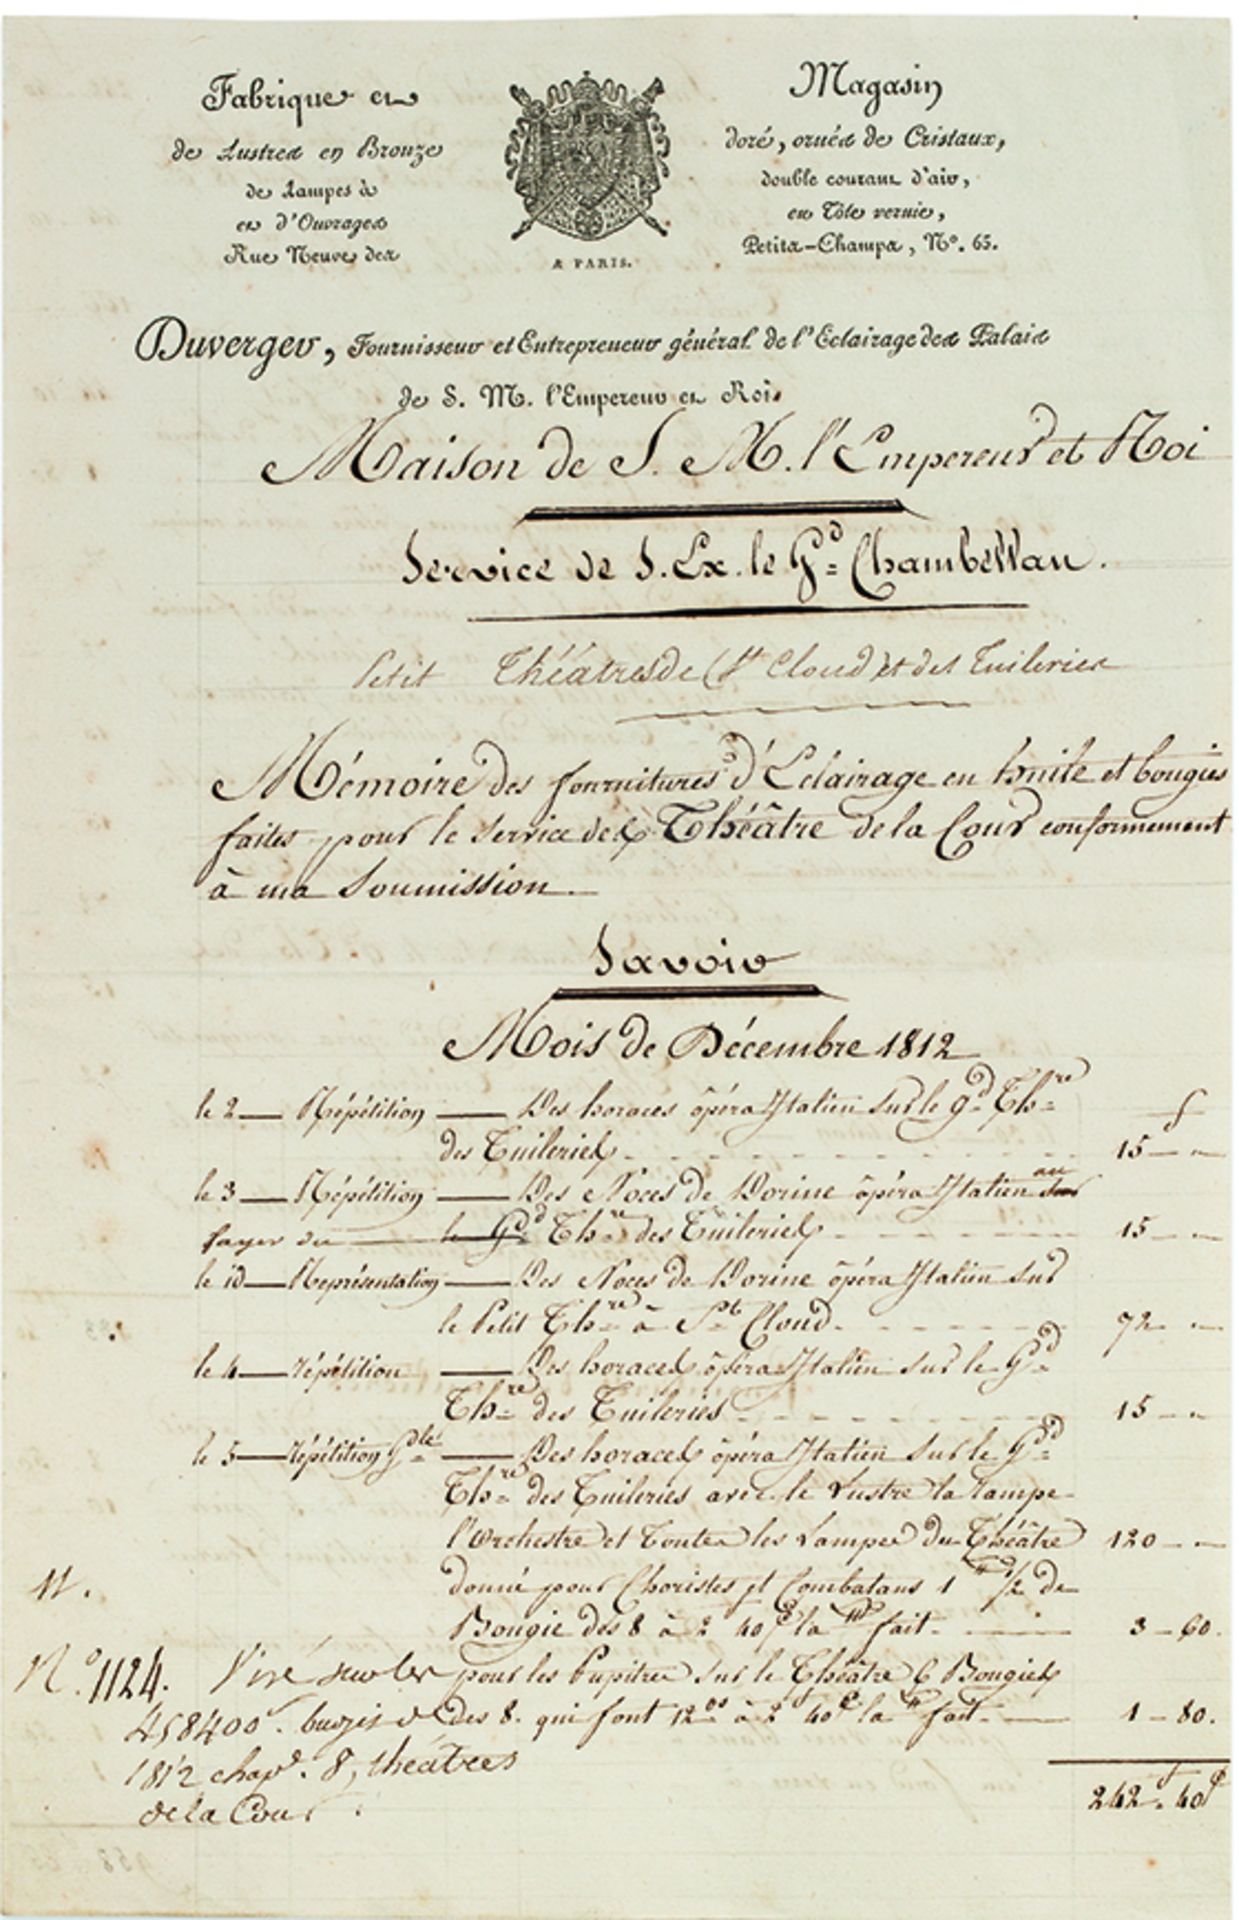 Fabrique et Magasin
de Lustres en Bronze doré, ornés de Cristaux,
de Lampes à double courant d'air,
et d'Ouvrages en Tôle vernie,
Rue Neuve des Petits-Champs, N.º 65.
A PARIS.
Duverger, Fournisseur et Entrepreneur général de l'Eclairage des Palais
de S. M. l'Empereur et Roi.
Maison de S. M. l'Empereur et Roi
Service de S. Ex. le Gd= Chambellan.
Petit Théâtres de (St Cloud) et des Tuileries
Mémoire des fournitures d'Eclairage en huile et bougies
faites pour le service des Théâtre de la Cour conformement
à ma Soumission.
Savoir
Mois de Décembre 1812
le 2 — Répétition — Des horaces opéra Italien sur le gd= Thre= f
des Tuileries 15 — "
le 3 — Répétition — Des Noces de Dorine opéra Italien au sur
foyer du le Gd= Thre= des Tuileries 15 — "
le 10 — Représentation — Des Noces de Dorine opéra Italien sur
le Petit Thre= à St= Cloud 72 "
le 4 — répétition — Des horaces opéra Italien sur le Gd=
Thre= des Tuileries 15 — "
le 5 — répétition Gdle= — Des horaces opéra Italien sur le Gd=
Thre= des Tuileries avec le Lustre la rampe
l'Orchestre et Toutes les Lampes du Théâtre 120 — "
donné pour Choristes et Combatans 1 tt 1/2 de
N. Bougie des 8 à 2 40c la tt fait 3 — 60.
N.º 1124. Viré sur les pour les Pupitres sur le Théâtre 6 Bougies
458400f. budjet de des 8. qui font 12os à 2 40c la tt fait 1 — 80.
1812 chap. 8, théâtres
de la Cour. 242f. 40c